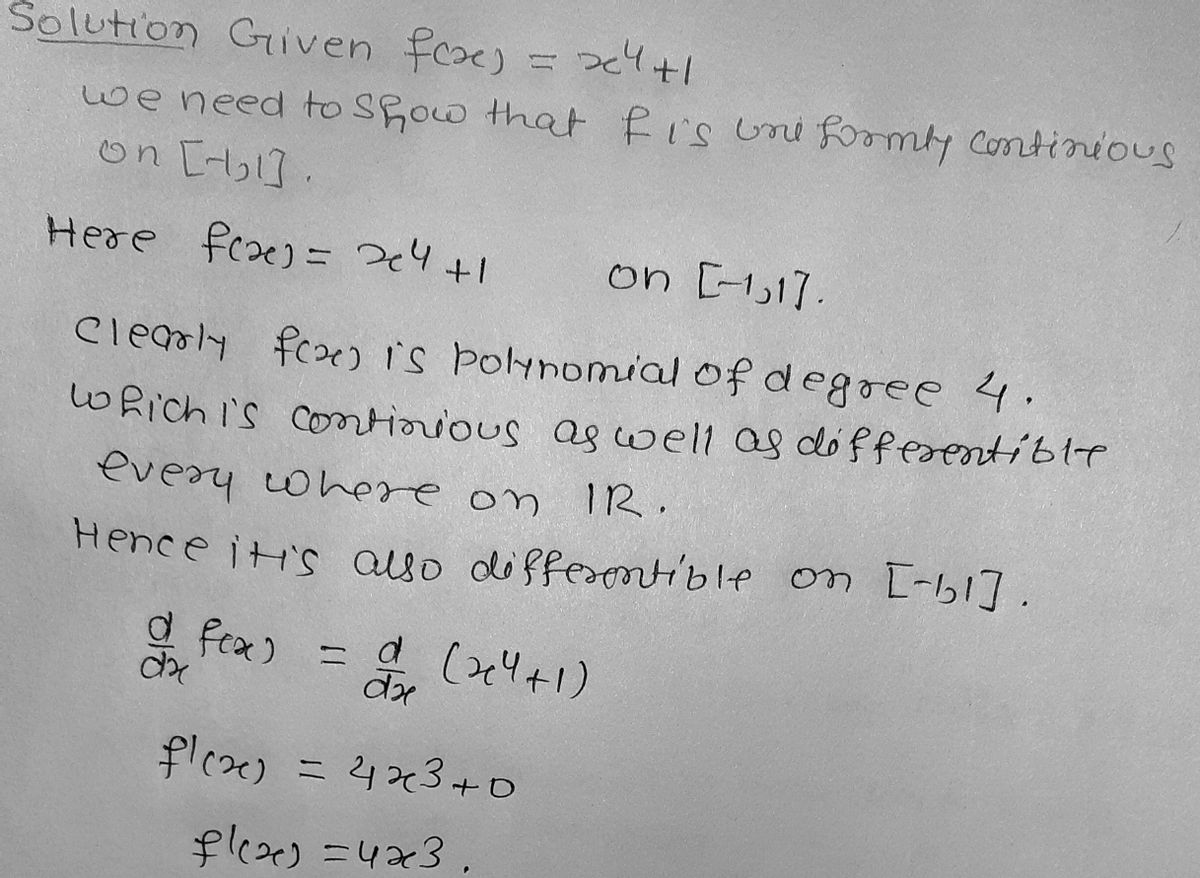 Solution Given f(x) = x⁴+1
we need to show that f is uniformly continious
on [-1,1].
Here f(x) = x⁴+1 on [-1,1].
Clearly f(x) is polynomial of degree 4.
which is continious as well as differentible
every where on IR.
Hence it is also differentible on [-1,1].
d/dx f(x) = d/dx (x⁴+1)
f'(x) = 4x³+0
f'(x) = 4x³.